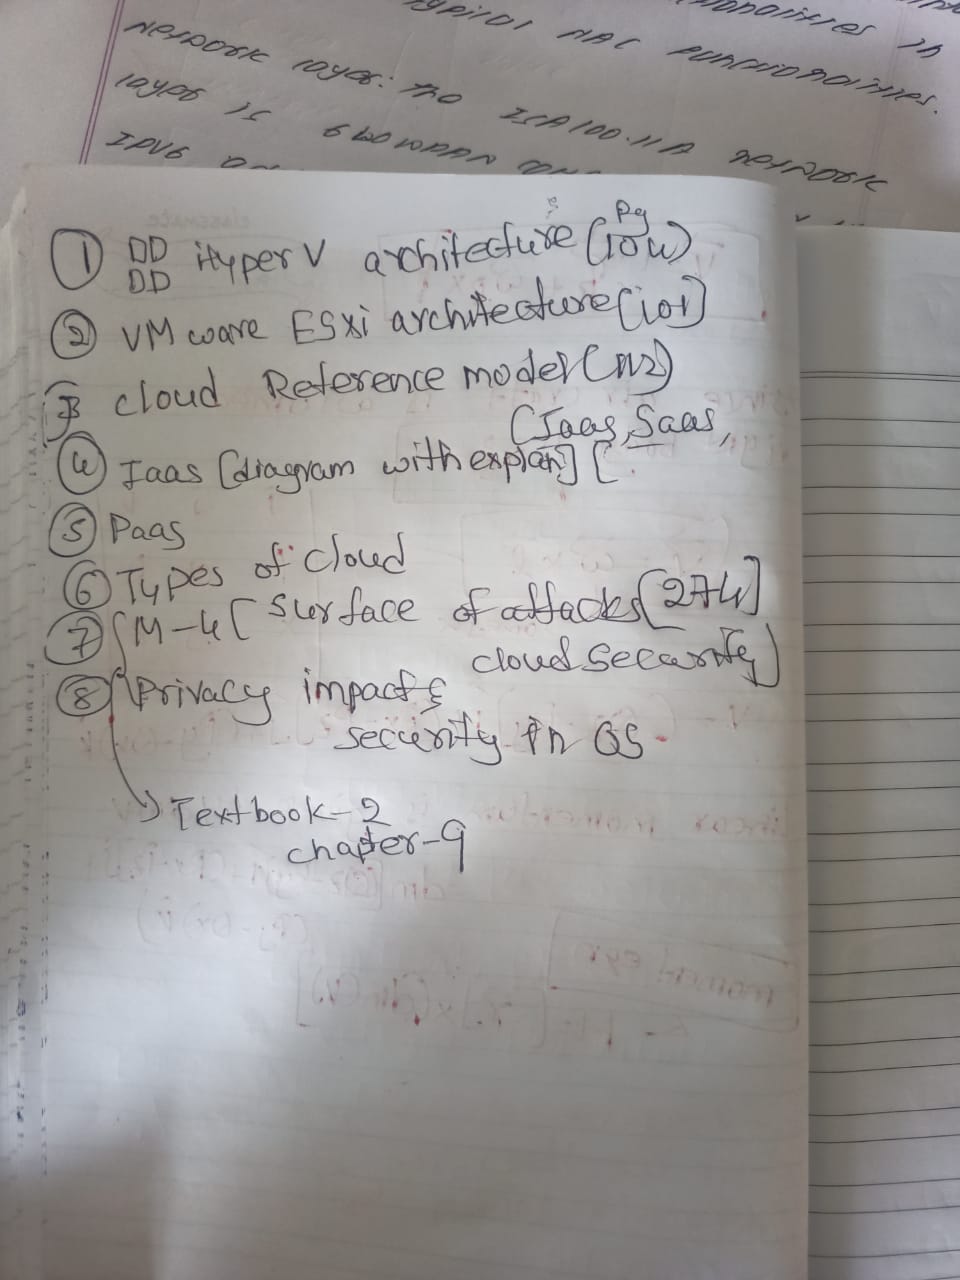 MAC functionalities.
Network layer: The ISA100.11A network
layer is 6LoWPAN
IPV6
① Hyper V architecture (Pg 104)
② VM ware ESxi architecture (101)
3 cloud Reference model (112)
(Iaas, Saas,
④ Iaas [diagram with explan] [
⑤ Paas
⑥ Types of cloud
⑦ M-4 [surface of attacks [274]
cloud security)
⑧ Privacy impact &
security in OS
Textbook-2
chapter-9